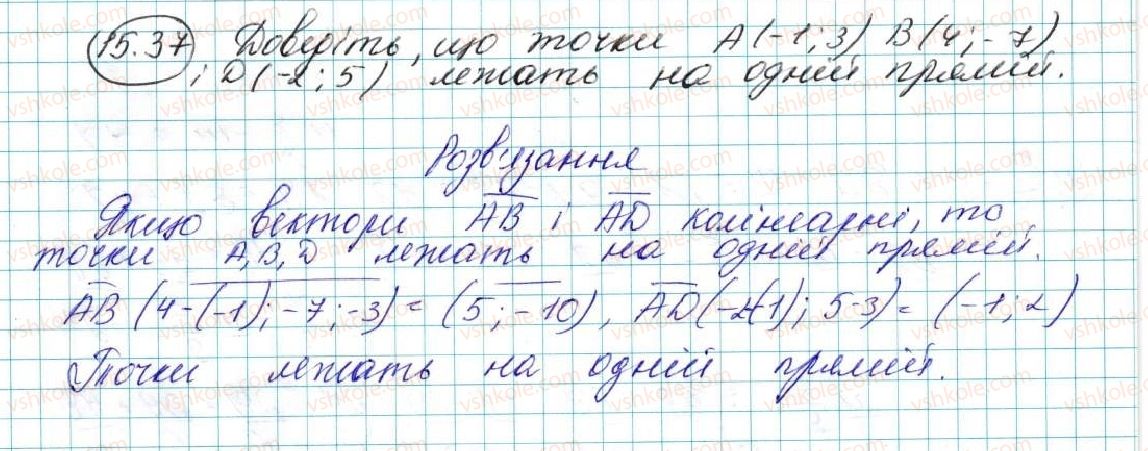 15.37 Доведіть, що точки A(-1; 3) B(4; -7)
і D(-2; 5) лежать на одній прямій.
Розв'язання
Якщо вектори AB і AD колінеарні, то
точки A, B, D лежать на одній прямій.
AB (4-(-1); -7; -3) = (5; -10), AD(-2-(-1); 5-3) = (-1; 2)
Точки лежать на одній прямій.
vshkole.com